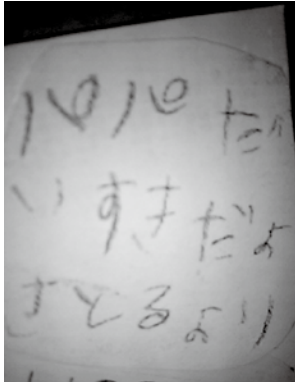 パパだ
いすきだよ
さとるより